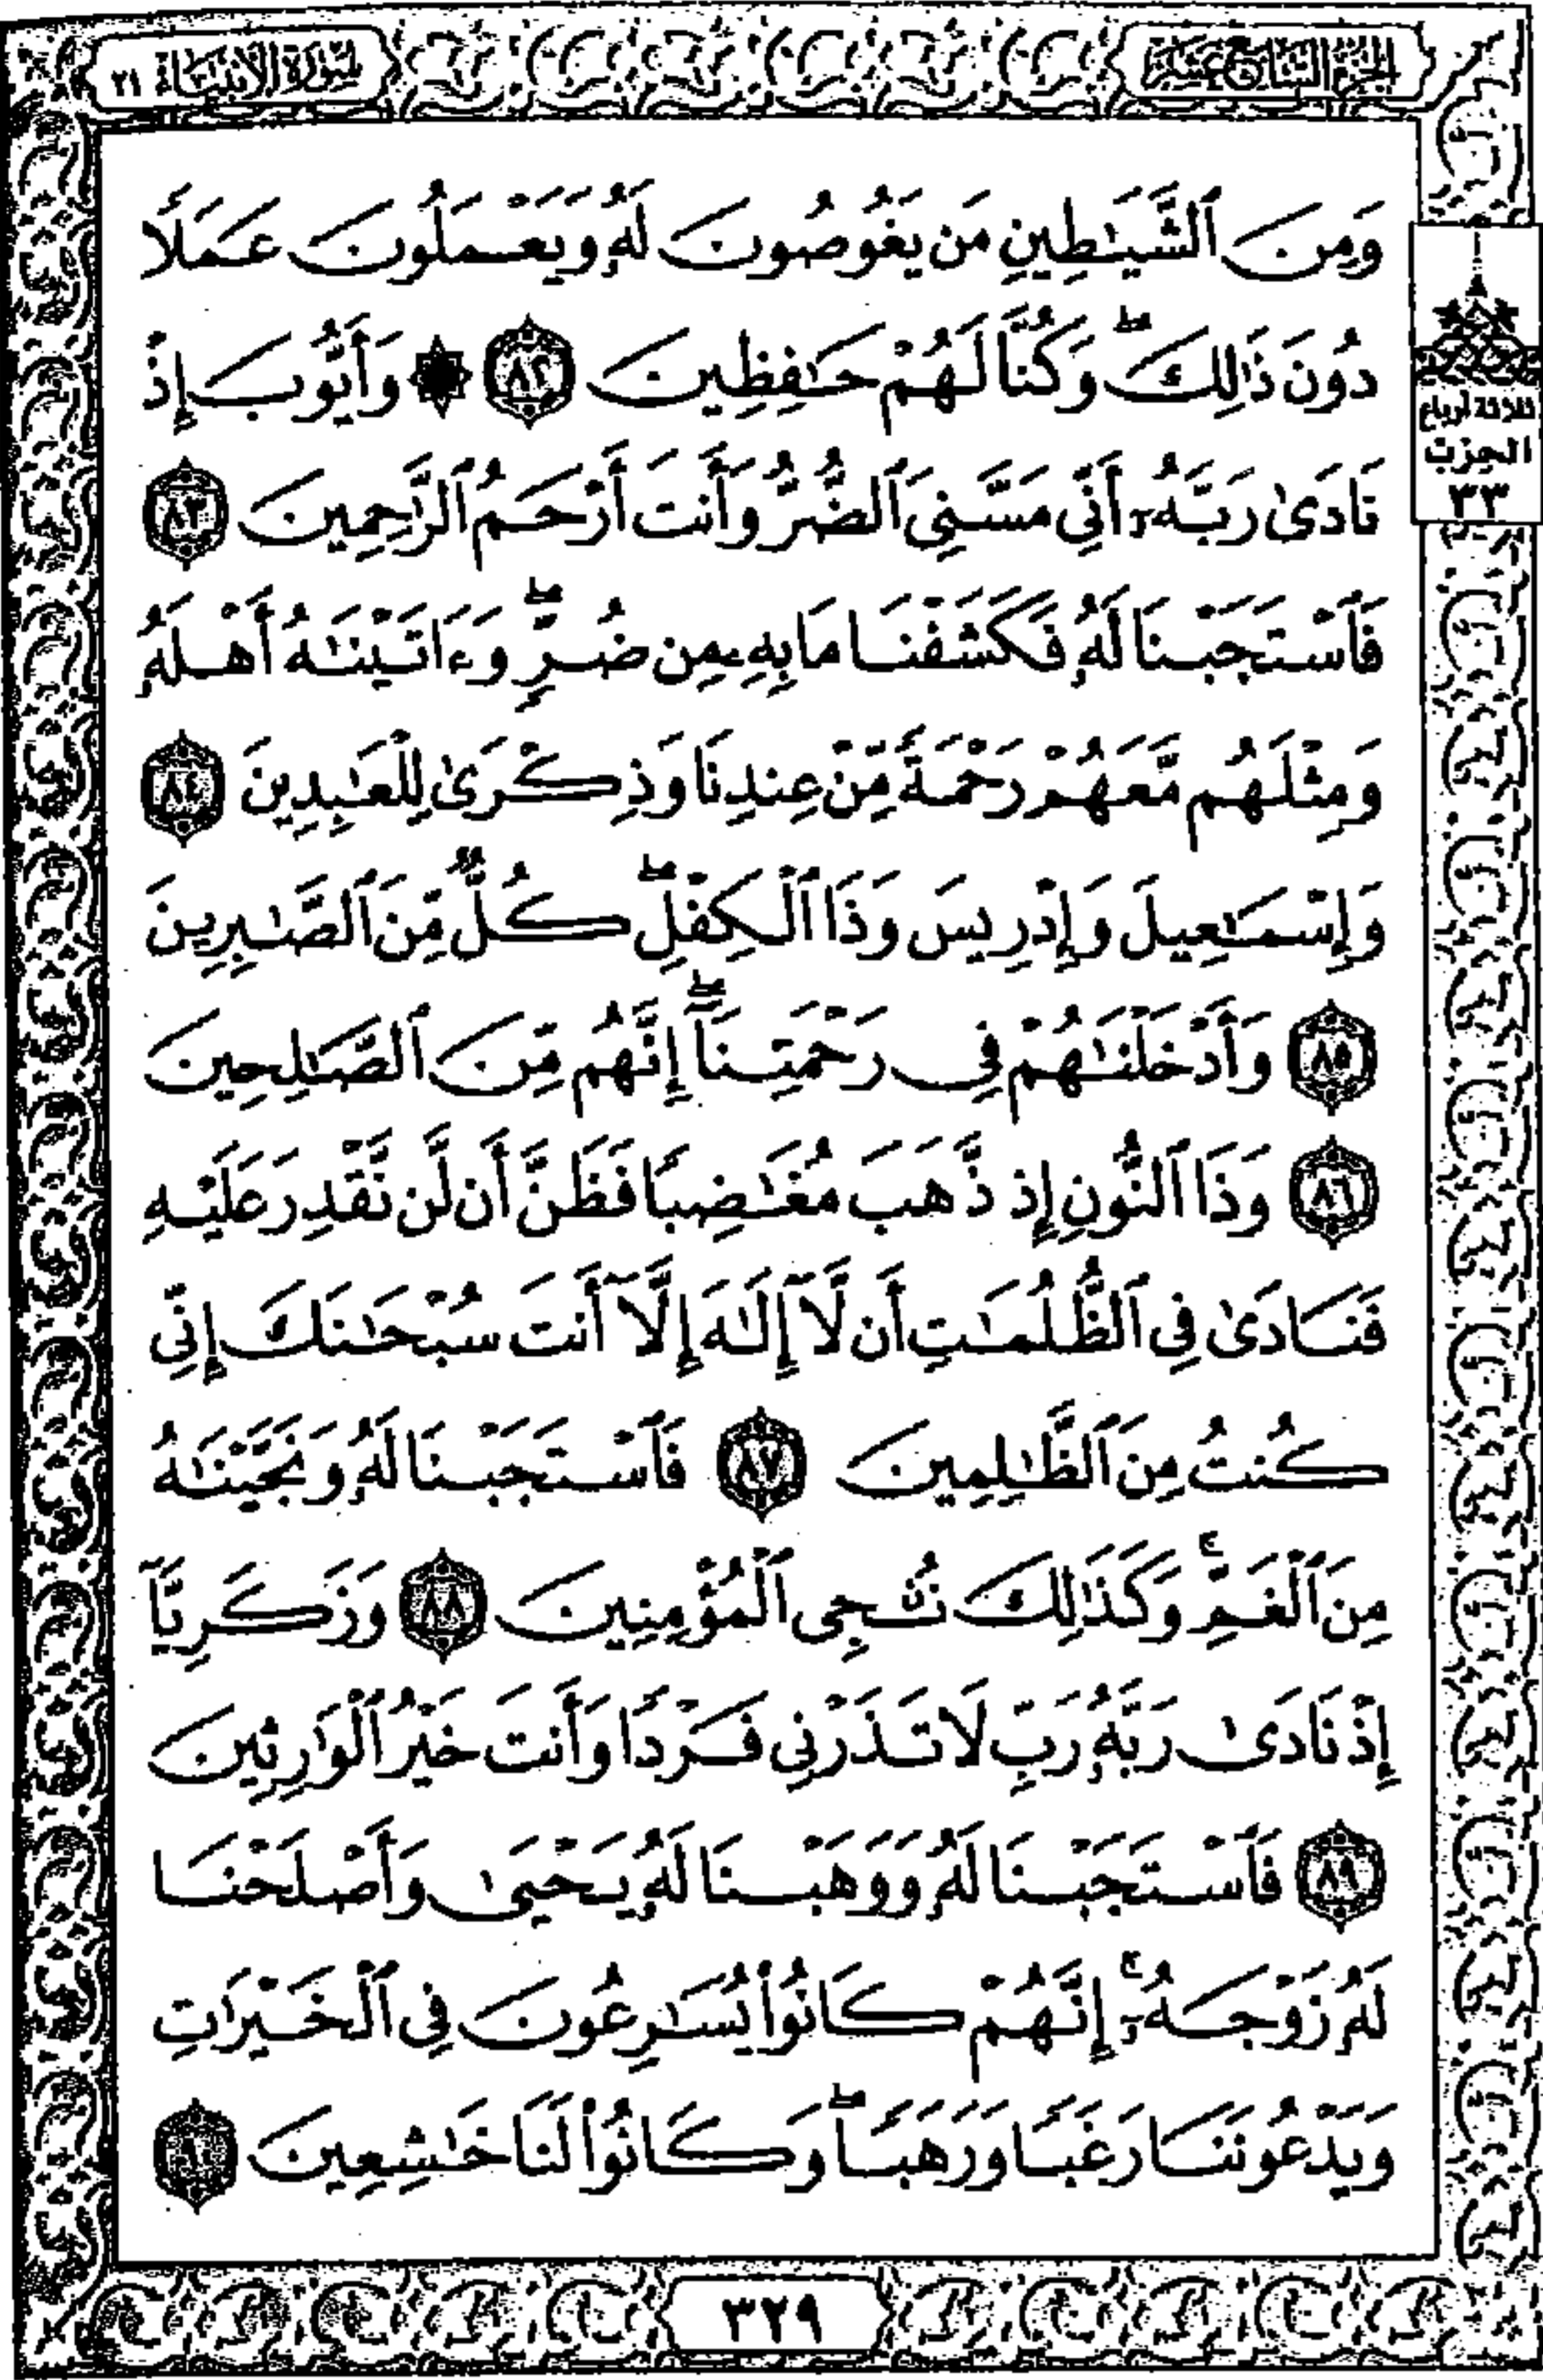 الجزء السابع عشر
سورة الأنبياء ٢١
وَمِنَ ٱلشَّيَـٰطِينِ مَن يَغُوصُونَ لَهُۥ وَيَعْمَلُونَ عَمَلًا
دُونَ ذَٰلِكَ ۖ وَكُنَّا لَهُمْ حَـٰفِظِينَ ٨٢ ۞ وَأَيُّوبَ إِذْ
نَادَىٰ رَبَّهُۥٓ أَنِّى مَسَّنِىَ ٱلضُّرُّ وَأَنتَ أَرْحَمُ ٱلرَّٰحِمِينَ ٨٣
فَٱسْتَجَبْنَا لَهُۥ فَكَشَفْنَا مَا بِهِۦ مِن ضُرٍّ ۖ وَءَاتَيْنَـٰهُ أَهْلَهُۥ
وَمِثْلَهُم مَّعَهُمْ رَحْمَةً مِّنْ عِندِنَا وَذِكْرَىٰ لِلْعَـٰبِدِينَ ٨٤
وَإِسْمَـٰعِيلَ وَإِدْرِيسَ وَذَا ٱلْكِفْلِ ۖ كُلٌّ مِّنَ ٱلصَّـٰبِرِينَ
٨٥ وَأَدْخَلْنَـٰهُمْ فِى رَحْمَتِنَآ ۖ إِنَّهُم مِّنَ ٱلصَّـٰلِحِينَ
٨٦ وَذَا ٱلنُّونِ إِذ ذَّهَبَ مُغَـٰضِبًا فَظَنَّ أَن لَّن نَّقْدِرَ عَلَيْهِ
فَنَادَىٰ فِى ٱلظُّلُمَـٰتِ أَن لَّآ إِلَـٰهَ إِلَّآ أَنتَ سُبْحَـٰنَكَ إِنِّى
كُنتُ مِنَ ٱلظَّـٰلِمِينَ ٨٧ فَٱسْتَجَبْنَا لَهُۥ وَنَجَّيْنَـٰهُ
مِنَ ٱلْغَمِّ ۚ وَكَذَٰلِكَ نُـۨجِى ٱلْمُؤْمِنِينَ ٨٨ وَزَكَرِيَّآ
إِذْ نَادَىٰ رَبَّهُۥ رَبِّ لَا تَذَرْنِى فَرْدًا وَأَنتَ خَيْرُ ٱلْوَٰرِثِينَ
٨٩ فَٱسْتَجَبْنَا لَهُۥ وَوَهَبْنَا لَهُۥ يَحْيَىٰ وَأَصْلَحْنَا
لَهُۥ زَوْجَهُۥٓ ۚ إِنَّهُمْ كَانُوا۟ يُسَـٰرِعُونَ فِى ٱلْخَيْرَٰتِ
وَيَدْعُونَنَا رَغَبًا وَرَهَبًا ۖ وَكَانُوا۟ لَنَا خَـٰشِعِينَ ٩٠
ثلاثة أرباع
الحزب
٣٣
٣٢٩